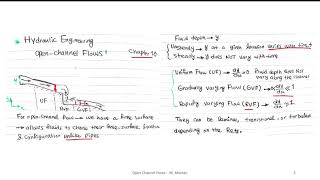 Hydraulic Engineering
Open-channel Flows
Chapter 10
UF
GVF
RVF
For open-channel flow → we have a free surface
→ allows fluids to choose their free-surface location
& configuration unlike pipes
Fluid depth → y
Unsteady → y at a given location varies with time
Steady → y does Not vary with time
Uniform Flow (UF) → dy/dx = 0 Fluid depth does Not
vary along the channel
Gradually varying Flow (GVF) → dy/dx < 1
Rapidly varying Flow (RVF) → dy/dx
They can be laminar, transitional or turbulent
depending on the Re
Open Channel Flows - M.